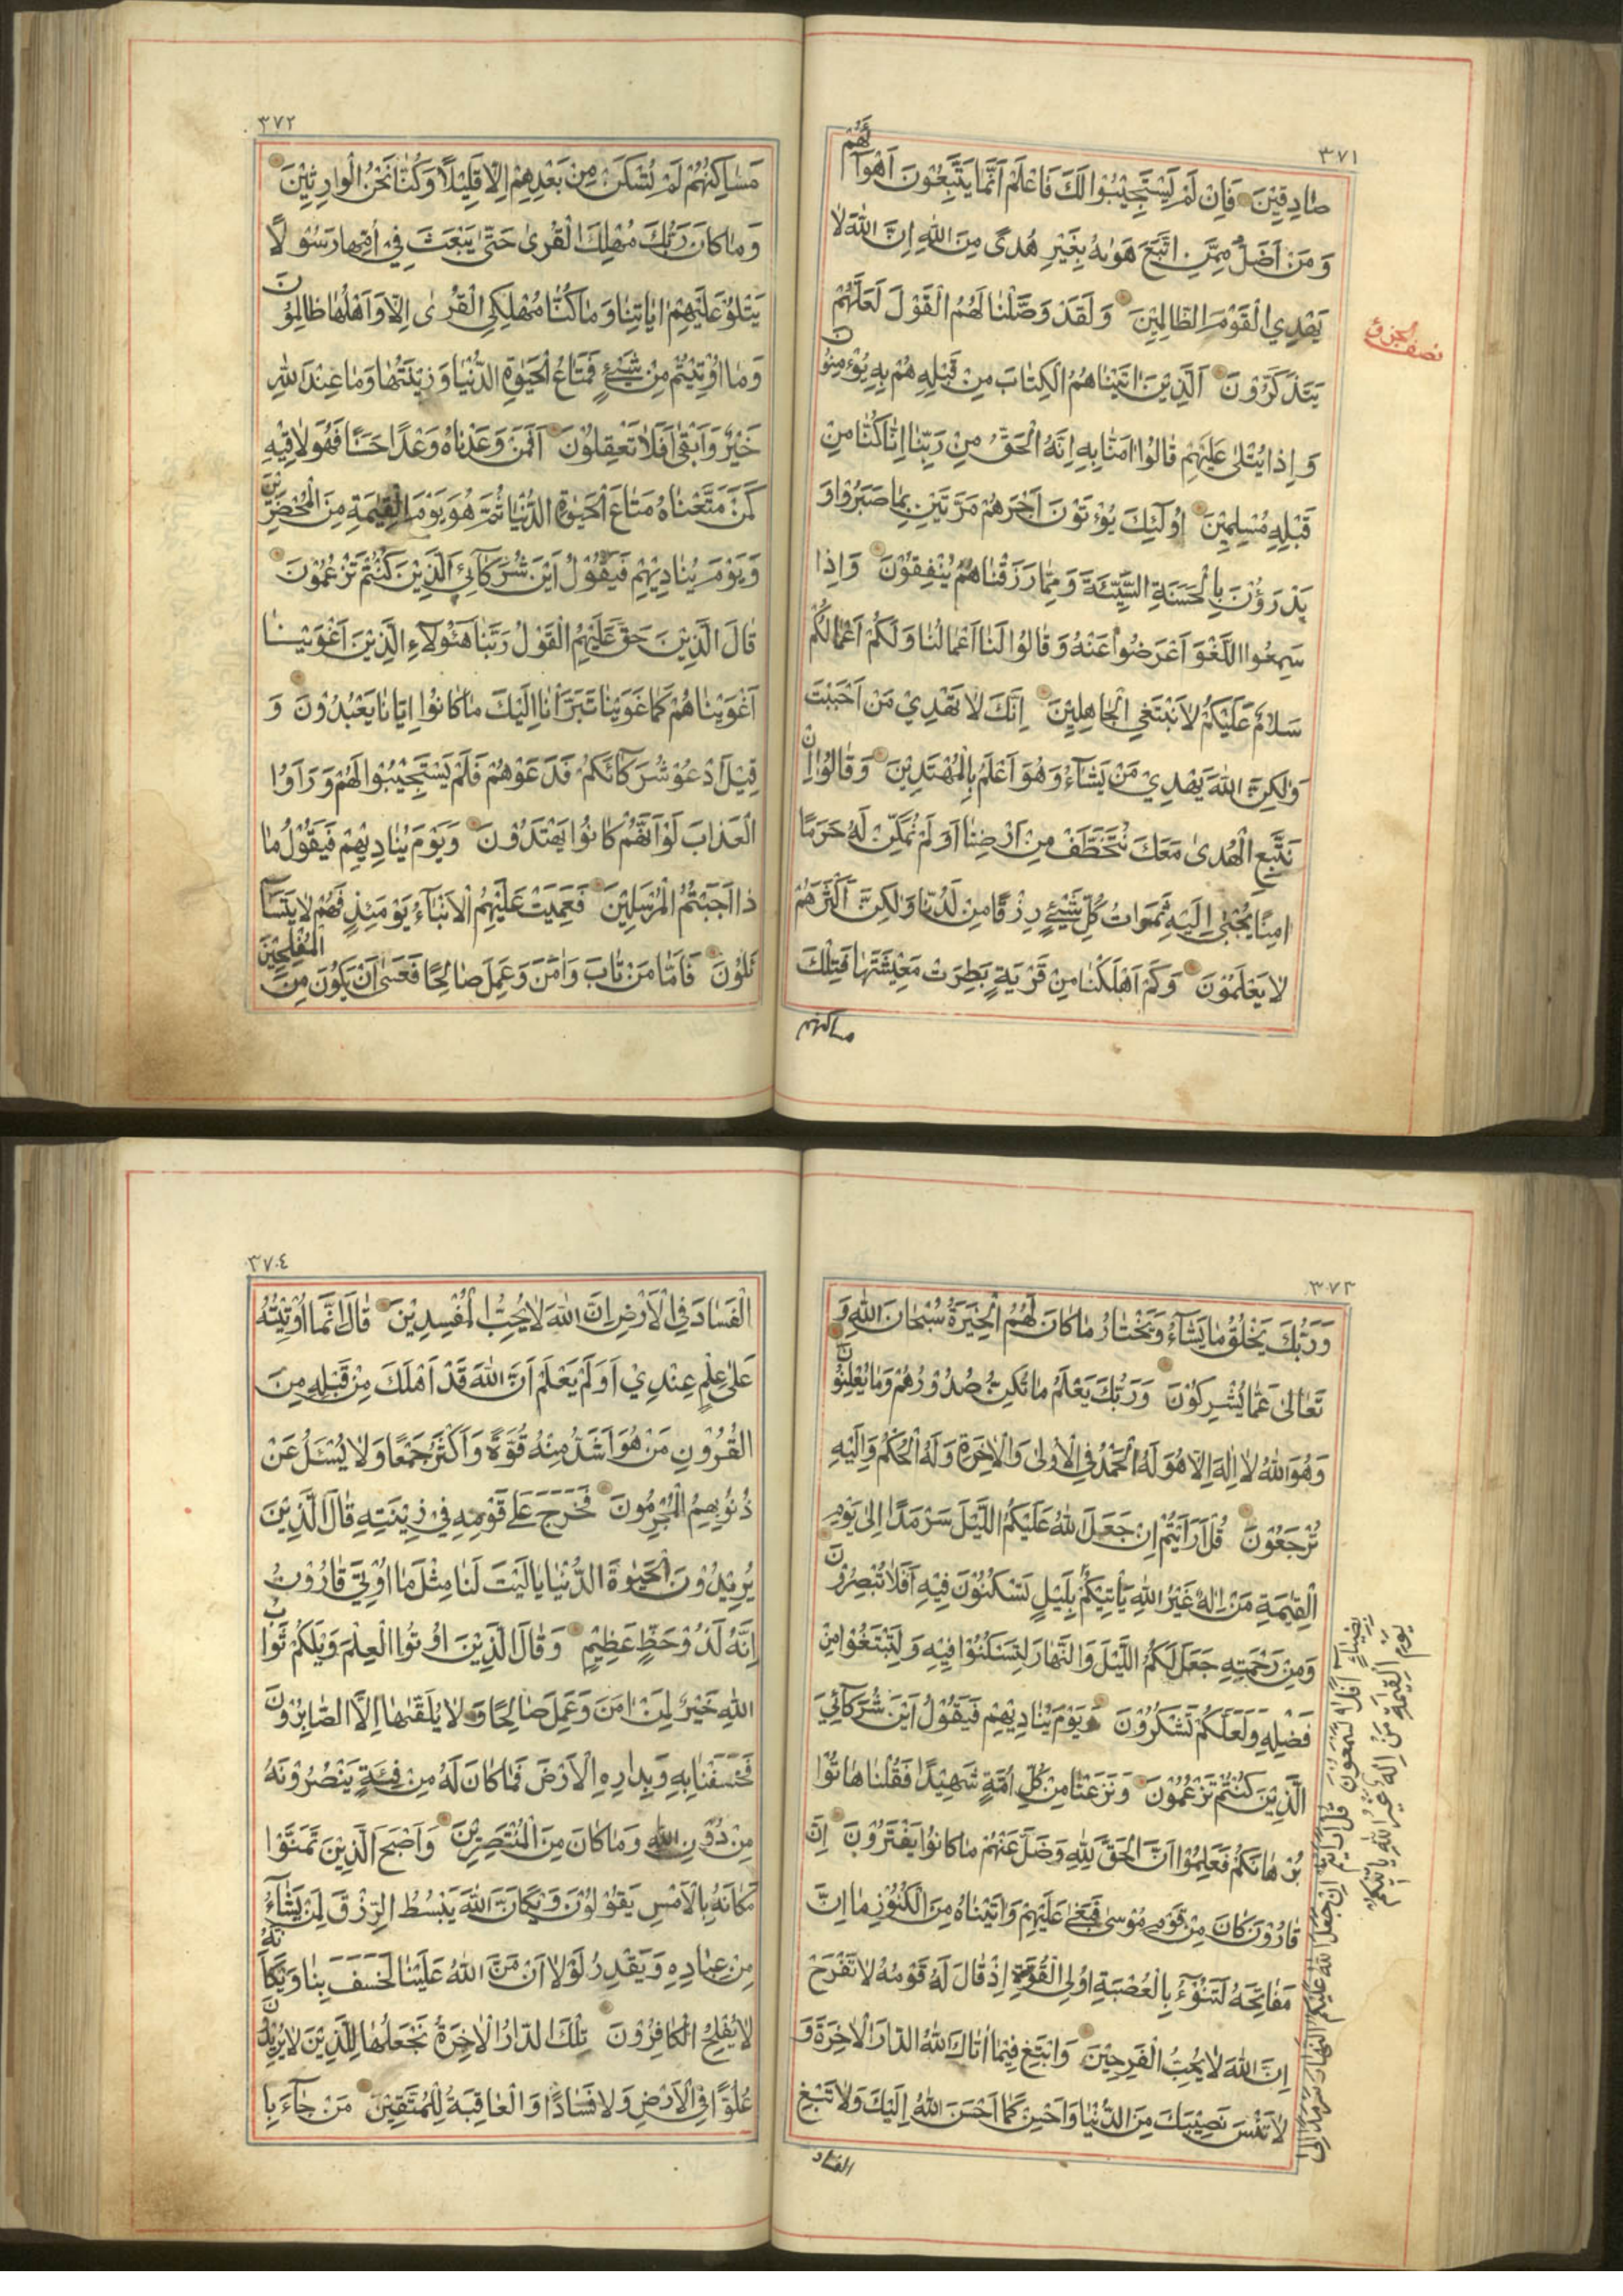 ٣٧١
صَادِقِيْنَ فَاِنْ لَمْ يَسْتَجِيْبُوْا لَكَ فَاعْلَمْ اَنَّمَا يَتَّبِعُوْنَ اَهْوَآءَهُمْ
وَمَنْ اَضَلُّ مِمَّنِ اتَّبَعَ هَوٰىهُ بِغَيْرِ هُدًى مِنَ اللّٰهِ اِنَّ اللّٰهَ لَا
يَهْدِي الْقَوْمَ الظَّالِمِيْنَ وَلَقَدْ وَصَّلْنَا لَهُمُ الْقَوْلَ لَعَلَّهُمْ
نصف الجزؤ
يَتَذَكَّرُوْنَ اَلَّذِيْنَ اٰتَيْنَاهُمُ الْكِتَابَ مِنْ قَبْلِهِ هُمْ بِهِ يُؤْمِنُوْنَ
وَاِذَا يُتْلٰى عَلَيْهِمْ قَالُوْا اٰمَنَّا بِهِ اِنَّهُ الْحَقُّ مِنْ رَبِّنَا اِنَّا كُنَّا مِنْ
قَبْلِهِ مُسْلِمِيْنَ اُولٰٓئِكَ يُؤْتَوْنَ اَجْرَهُمْ مَرَّتَيْنِ بِمَا صَبَرُوْا وَ
يَدْرَؤُنَ بِالْحَسَنَةِ السَّيِّئَةَ وَمِمَّا رَزَقْنَاهُمْ يُنْفِقُوْنَ وَاِذَا
سَمِعُوا اللَّغْوَ اَعْرَضُوْا عَنْهُ وَقَالُوْا لَنَا اَعْمَالُنَا وَلَكُمْ اَعْمَالُكُمْ
سَلَامٌ عَلَيْكُمْ لَا نَبْتَغِي الْجَاهِلِيْنَ اِنَّكَ لَا تَهْدِيْ مَنْ اَحْبَبْتَ
وَلٰكِنَّ اللّٰهَ يَهْدِيْ مَنْ يَشَآءُ وَهُوَ اَعْلَمُ بِالْمُهْتَدِيْنَ وَقَالُوْا اِنْ
نَتَّبِعِ الْهُدٰى مَعَكَ نُتَخَطَّفْ مِنْ اَرْضِنَا اَوَلَمْ نُمَكِّنْ لَهُمْ حَرَمًا
اٰمِنًا يُجْبٰى اِلَيْهِ ثَمَرَاتُ كُلِّ شَيْئٍ رِزْقًا مِنْ لَدُنَّا وَلٰكِنَّ اَكْثَرَهُمْ
لَا يَعْلَمُوْنَ وَكَمْ اَهْلَكْنَا مِنْ قَرْيَةٍ بَطِرَتْ مَعِيْشَتَهَا فَتِلْكَ
مساكنهم
٣٧٢
مَسَاكِنُهُمْ لَمْ تُسْكَنْ مِنْ بَعْدِهِمْ اِلَّا قَلِيْلًا وَكُنَّا نَحْنُ الْوَارِثِيْنَ
وَمَا كَانَ رَبُّكَ مُهْلِكَ الْقُرٰى حَتّٰى يَبْعَثَ فِيْ اُمِّهَا رَسُوْلًا
يَتْلُوْ عَلَيْهِمْ اٰيَاتِنَا وَمَا كُنَّا مُهْلِكِي الْقُرٰى اِلَّا وَاَهْلُهَا ظَالِمُوْنَ
وَمَا اُوْتِيْتُمْ مِنْ شَيْئٍ فَمَتَاعُ الْحَيٰوةِ الدُّنْيَا وَزِيْنَتُهَا وَمَا عِنْدَ اللّٰهِ
خَيْرٌ وَاَبْقٰى اَفَلَا تَعْقِلُوْنَ اَفَمَنْ وَعَدْنَاهُ وَعْدًا حَسَنًا فَهُوَ لَاقِيْهِ
كَمَنْ مَتَّعْنَاهُ مَتَاعَ الْحَيٰوةِ الدُّنْيَا ثُمَّ هُوَ يَوْمَ الْقِيٰمَةِ مِنَ الْمُحْضَرِيْنَ
وَيَوْمَ يُنَادِيْهِمْ فَيَقُوْلُ اَيْنَ شُرَكَآئِيَ الَّذِيْنَ كُنْتُمْ تَزْعُمُوْنَ
قَالَ الَّذِيْنَ حَقَّ عَلَيْهِمُ الْقَوْلُ رَبَّنَا هٰٓؤُلَاءِ الَّذِيْنَ اَغْوَيْنَا
اَغْوَيْنَاهُمْ كَمَا غَوَيْنَا تَبَرَّأْنَا اِلَيْكَ مَا كَانُوْا اِيَّانَا يَعْبُدُوْنَ وَ
قِيْلَ ادْعُوْ شُرَكَآئَكُمْ فَدَعَوْهُمْ فَلَمْ يَسْتَجِيْبُوْا لَهُمْ وَرَاَوُا
الْعَذَابَ لَوْ اَنَّهُمْ كَانُوْا يَهْتَدُوْنَ وَيَوْمَ يُنَادِيْهِمْ فَيَقُوْلُ مَا
ذَا اَجَبْتُمُ الْمُرْسَلِيْنَ فَعَمِيَتْ عَلَيْهِمُ الْاَنْبَآءُ يَوْمَئِذٍ فَهُمْ لَا يَتَسَآ
ئَلُوْنَ فَاَمَّا مَنْ تَابَ وَاٰمَنَ وَعَمِلَ صَالِحًا فَعَسٰى اَنْ يَكُوْنَ مِنَ الْمُفْلِحِيْنَ
٣٧٣
وَرَبُّكَ يَخْلُقُ مَا يَشَآءُ وَيَخْتَارُ مَا كَانَ لَهُمُ الْخِيَرَةُ سُبْحَانَ اللّٰهِ وَ
تَعَالٰى عَمَّا يُشْرِكُوْنَ وَرَبُّكَ يَعْلَمُ مَا تُكِنُّ صُدُوْرُهُمْ وَمَا يُعْلِنُوْنَ
وَهُوَ اللّٰهُ لَا اِلٰهَ اِلَّا هُوَ لَهُ الْحَمْدُ فِي الْاُوْلٰى وَالْاٰخِرَةِ وَلَهُ الْحُكْمُ وَاِلَيْهِ
تُرْجَعُوْنَ قُلْ اَرَاَيْتُمْ اِنْ جَعَلَ اللّٰهُ عَلَيْكُمُ اللَّيْلَ سَرْمَدًا اِلٰى يَوْمِ
الْقِيٰمَةِ مَنْ اِلٰهٌ غَيْرُ اللّٰهِ يَأْتِيْكُمْ بِلَيْلٍ تَسْكُنُوْنَ فِيْهِ اَفَلَا تُبْصِرُوْنَ
وَمِنْ رَحْمَتِهِ جَعَلَ لَكُمُ اللَّيْلَ وَالنَّهَارَ لِتَسْكُنُوْا فِيْهِ وَلِتَبْتَغُوْا مِنْ
فَضْلِهِ وَلَعَلَّكُمْ تَشْكُرُوْنَ وَيَوْمَ يُنَادِيْهِمْ فَيَقُوْلُ اَيْنَ شُرَكَآئِيَ
الَّذِيْنَ كُنْتُمْ تَزْعُمُوْنَ وَنَزَعْنَا مِنْ كُلِّ اُمَّةٍ شَهِيْدًا فَقُلْنَا هَاتُوْا
بُرْهَانَكُمْ فَعَلِمُوْا اَنَّ الْحَقَّ لِلّٰهِ وَضَلَّ عَنْهُمْ مَا كَانُوْا يَفْتَرُوْنَ اِنَّ
قَارُوْنَ كَانَ مِنْ قَوْمِ مُوْسٰى فَبَغٰى عَلَيْهِمْ وَاٰتَيْنَاهُ مِنَ الْكُنُوْزِ مَا اِنَّ
مَفَاتِحَهُ لَتَنُوْٓءُ بِالْعُصْبَةِ اُولِى الْقُوَّةِ اِذْ قَالَ لَهُ قَوْمُهُ لَا تَفْرَحْ
اِنَّ اللّٰهَ لَا يُحِبُّ الْفَرِحِيْنَ وَابْتَغِ فِيْمَا اٰتَاكَ اللّٰهُ الدَّارَ الْاٰخِرَةَ وَ
لَا تَنْسَ نَصِيْبَكَ مِنَ الدُّنْيَا وَاَحْسِنْ كَمَا اَحْسَنَ اللّٰهُ اِلَيْكَ وَلَا تَبْغِ
الفساد
قُلْ اَرَاَيْتُمْ اِنْ جَعَلَ اللّٰهُ عَلَيْكُمُ النَّهَارَ سَرْمَدًا اِلٰى
يَوْمِ الْقِيٰمَةِ مَنْ اِلٰهٌ غَيْرُ اللّٰهِ يَاْتِيْكُمْ
بِضِيَآءٍ اَفَلَا تَسْمَعُوْنَ
٣٧٤
الْفَسَادَ فِي الْاَرْضِ اِنَّ اللّٰهَ لَا يُحِبُّ الْمُفْسِدِيْنَ قَالَ اِنَّمَا اُوْتِيْتُهُ
عَلٰى عِلْمٍ عِنْدِيْ اَوَلَمْ يَعْلَمْ اَنَّ اللّٰهَ قَدْ اَهْلَكَ مِنْ قَبْلِهِ مِنَ
الْقُرُوْنِ مَنْ هُوَ اَشَدُّ مِنْهُ قُوَّةً وَاَكْثَرُ جَمْعًا وَلَا يُسْئَلُ عَنْ
ذُنُوْبِهِمُ الْمُجْرِمُوْنَ فَخَرَجَ عَلٰى قَوْمِهِ فِيْ زِيْنَتِهِ قَالَ الَّذِيْنَ
يُرِيْدُوْنَ الْحَيٰوةَ الدُّنْيَا يَالَيْتَ لَنَا مِثْلَ مَا اُوْتِيَ قَارُوْنُ
اِنَّهُ لَذُوْ حَظٍّ عَظِيْمٍ وَقَالَ الَّذِيْنَ اُوْتُوا الْعِلْمَ وَيْلَكُمْ ثَوَابُ
اللّٰهِ خَيْرٌ لِمَنْ اٰمَنَ وَعَمِلَ صَالِحًا وَلَا يُلَقّٰىهَا اِلَّا الصَّابِرُوْنَ
فَخَسَفْنَا بِهِ وَبِدَارِهِ الْاَرْضَ فَمَا كَانَ لَهُ مِنْ فِئَةٍ يَنْصُرُوْنَهُ
مِنْ دُوْنِ اللّٰهِ وَمَا كَانَ مِنَ الْمُنْتَصِرِيْنَ وَاَصْبَحَ الَّذِيْنَ تَمَنَّوْا
مَكَانَهُ بِالْاَمْسِ يَقُوْلُوْنَ وَيْكَاَنَّ اللّٰهَ يَبْسُطُ الرِّزْقَ لِمَنْ يَشَآءُ
مِنْ عِبَادِهِ وَيَقْدِرُ لَوْلَا اَنْ مَنَّ اللّٰهُ عَلَيْنَا لَخَسَفَ بِنَا وَيْكَاَنَّهُ
لَا يُفْلِحُ الْكَافِرُوْنَ تِلْكَ الدَّارُ الْاٰخِرَةُ نَجْعَلُهَا لِلَّذِيْنَ لَا يُرِيْدُوْنَ
عُلُوًّا فِي الْاَرْضِ وَلَا فَسَادًا وَالْعَاقِبَةُ لِلْمُتَّقِيْنَ مَنْ جَآءَ بِا